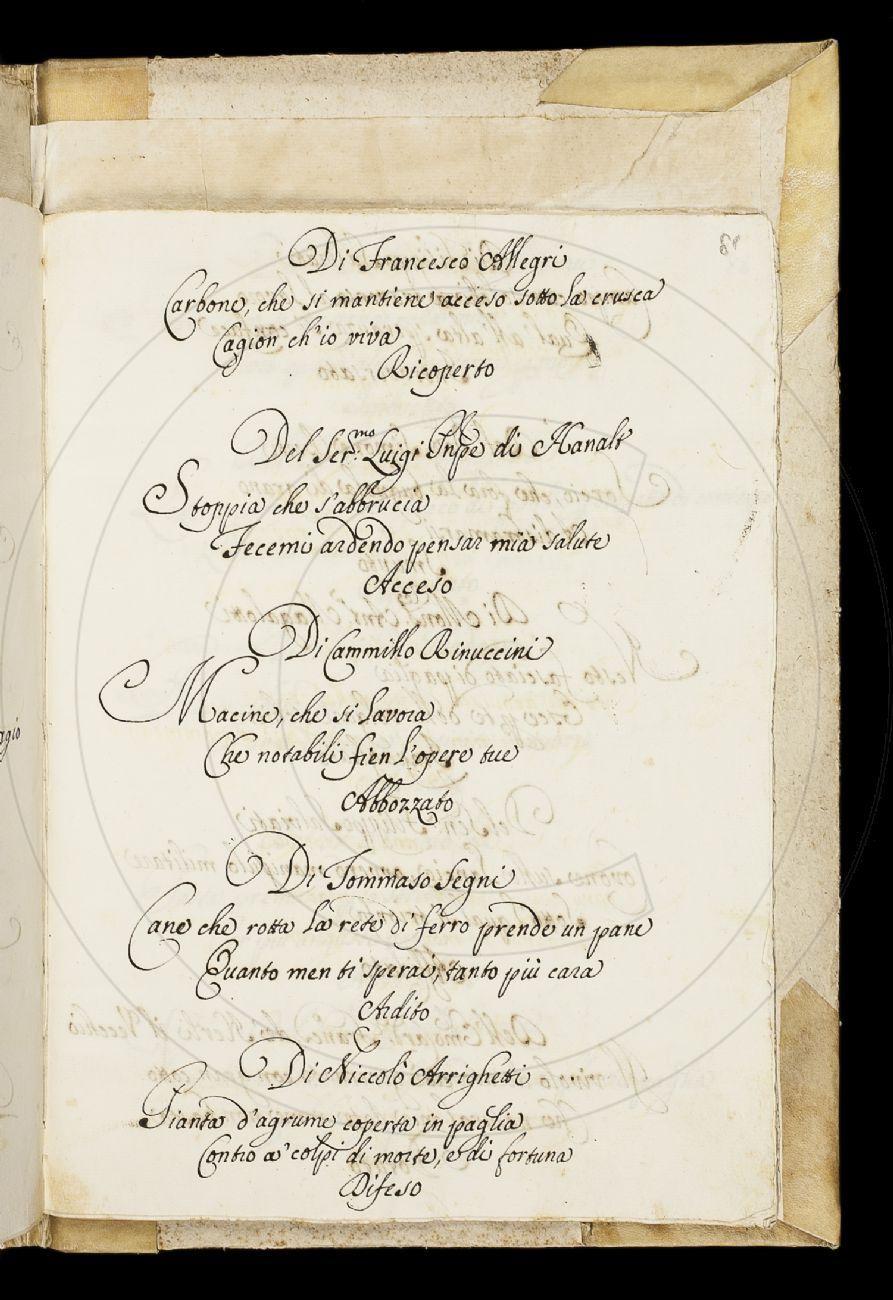 Di Francesco Allegri
Carbone, che si mantiene acceso sotto la crusca
Cagion ch'io viva
Ricoperto
Del Ser.mo Luigi Pnpe di Hanalt
Stoppia che s'abbrucia
Fecemi ardendo pensar mia salute
Acceso
Di Cammillo Rinuccini
Macine, che si lavora
Che notabili fien l'opere tue
Abbozzato
Di Tommaso Segni
Cane che rotta la rete di ferro prende un pane
Quanto men ti sperai, tanto più cara
Ardito
Di Niccolò Arrighetti
Pianta d'agrume coperta in paglia
Contro a' colpi di morte, e di fortuna
Difeso